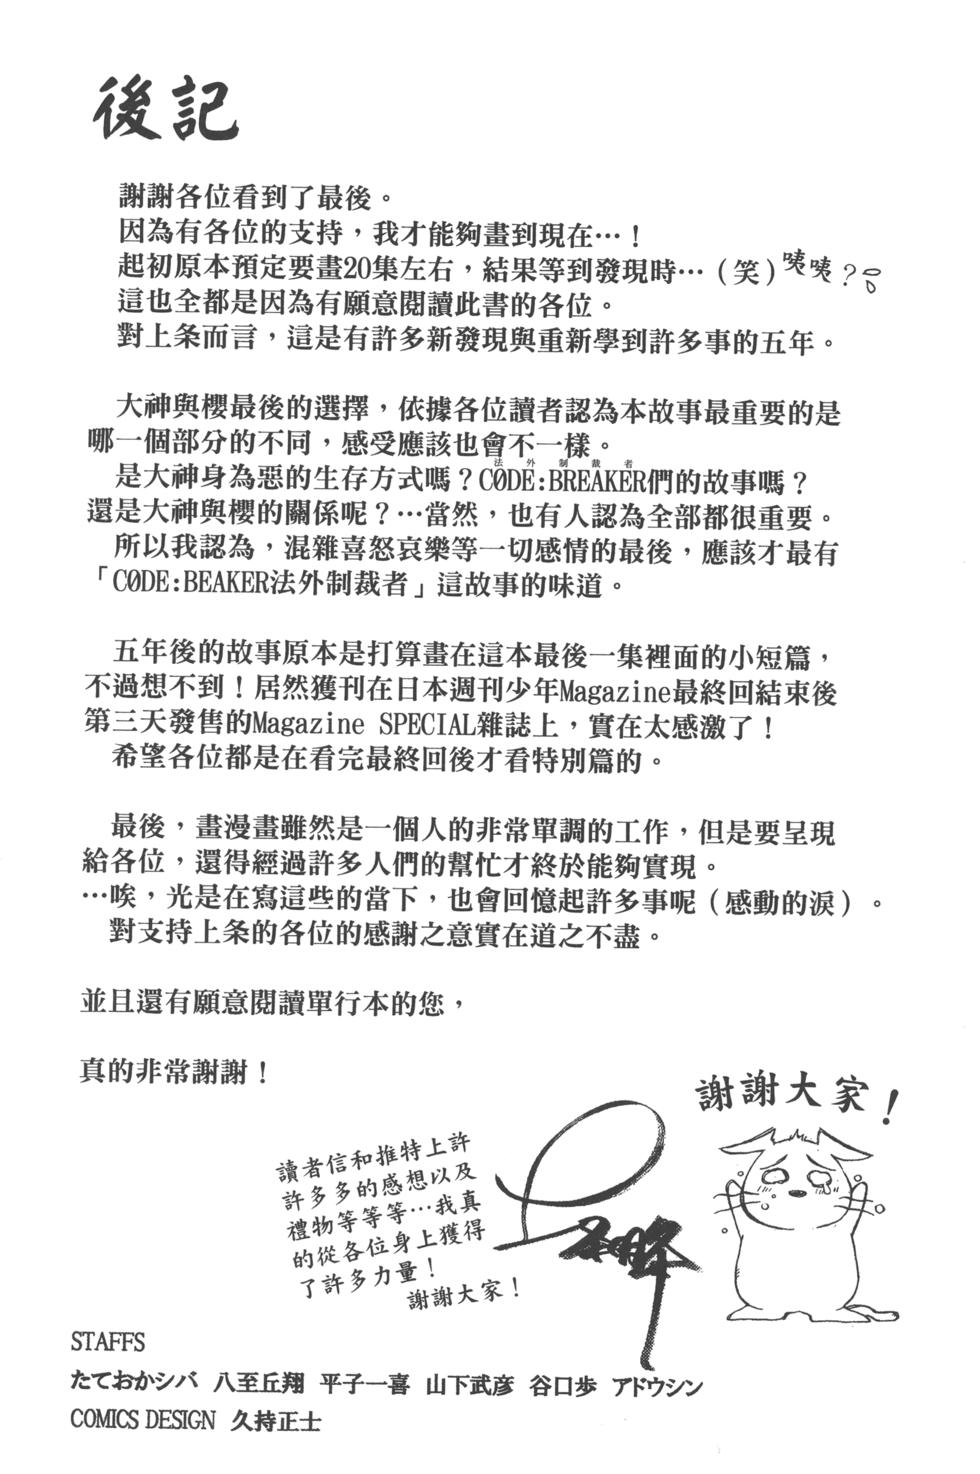 後記
謝謝各位看到了最後。
因為有各位的支持，我才能夠畫到現在…！
起初原本預定要畫20集左右，結果等到發現時…（笑）咦咦？
這也全都是因為有願意閱讀此書的各位。
對上条而言，這是有許多新發現與重新學到許多事的五年。
大神與櫻最後的選擇，依據各位讀者認為本故事最重要的是
哪一個部分的不同，感受應該也會不一樣。
法外制裁者
是大神身為惡的生存方式嗎？CØDE:BREAKER們的故事嗎？
還是大神與櫻的關係呢？…當然，也有人認為全部都很重要。
所以我認為，混雜喜怒哀樂等一切感情的最後，應該才最有
「CØDE:BEAKER法外制裁者」這故事的味道。
五年後的故事原本是打算畫在這本最後一集裡面的小短篇，
不過想不到！居然獲刊在日本週刊少年Magazine最終回結束後
第三天發售的Magazine SPECIAL雜誌上，實在太感激了！
希望各位都是在看完最終回後才看特別篇的。
最後，畫漫畫雖然是一個人的非常單調的工作，但是要呈現
給各位，還得經過許多人們的幫忙才終於能夠實現。
…唉，光是在寫這些的當下，也會回憶起許多事呢（感動的淚）。
對支持上条的各位的感謝之意實在道之不盡。
並且還有願意閱讀單行本的您，
真的非常謝謝！
謝謝大家！
讀者信和推特上許
許多多的感想以及
禮物等等等…我真
的從各位身上獲得
了許多力量！
謝謝大家！
STAFFS
たておかシバ 八至丘翔 平子一喜 山下武彦 谷口歩 アドウシン
COMICS DESIGN 久持正士